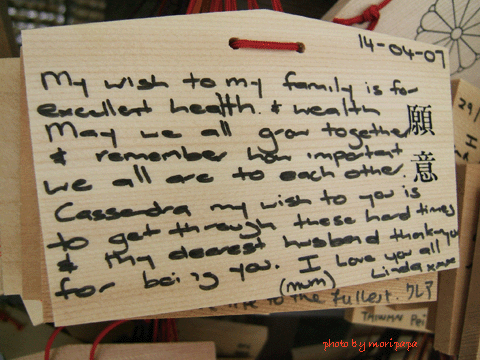 14-04-07
My wish to my family is for
excellent health. & wealth
May we all grow together
& remember how important
we all are to each other.
願意
Cassandra my wish to you is
to get through these hard times
& my dearest husband thankyou
for being you. I love you all
(mum) Linda xxxx
to the fullest. クレア
TAIWAN Pei
29/
I
photo by moripapa